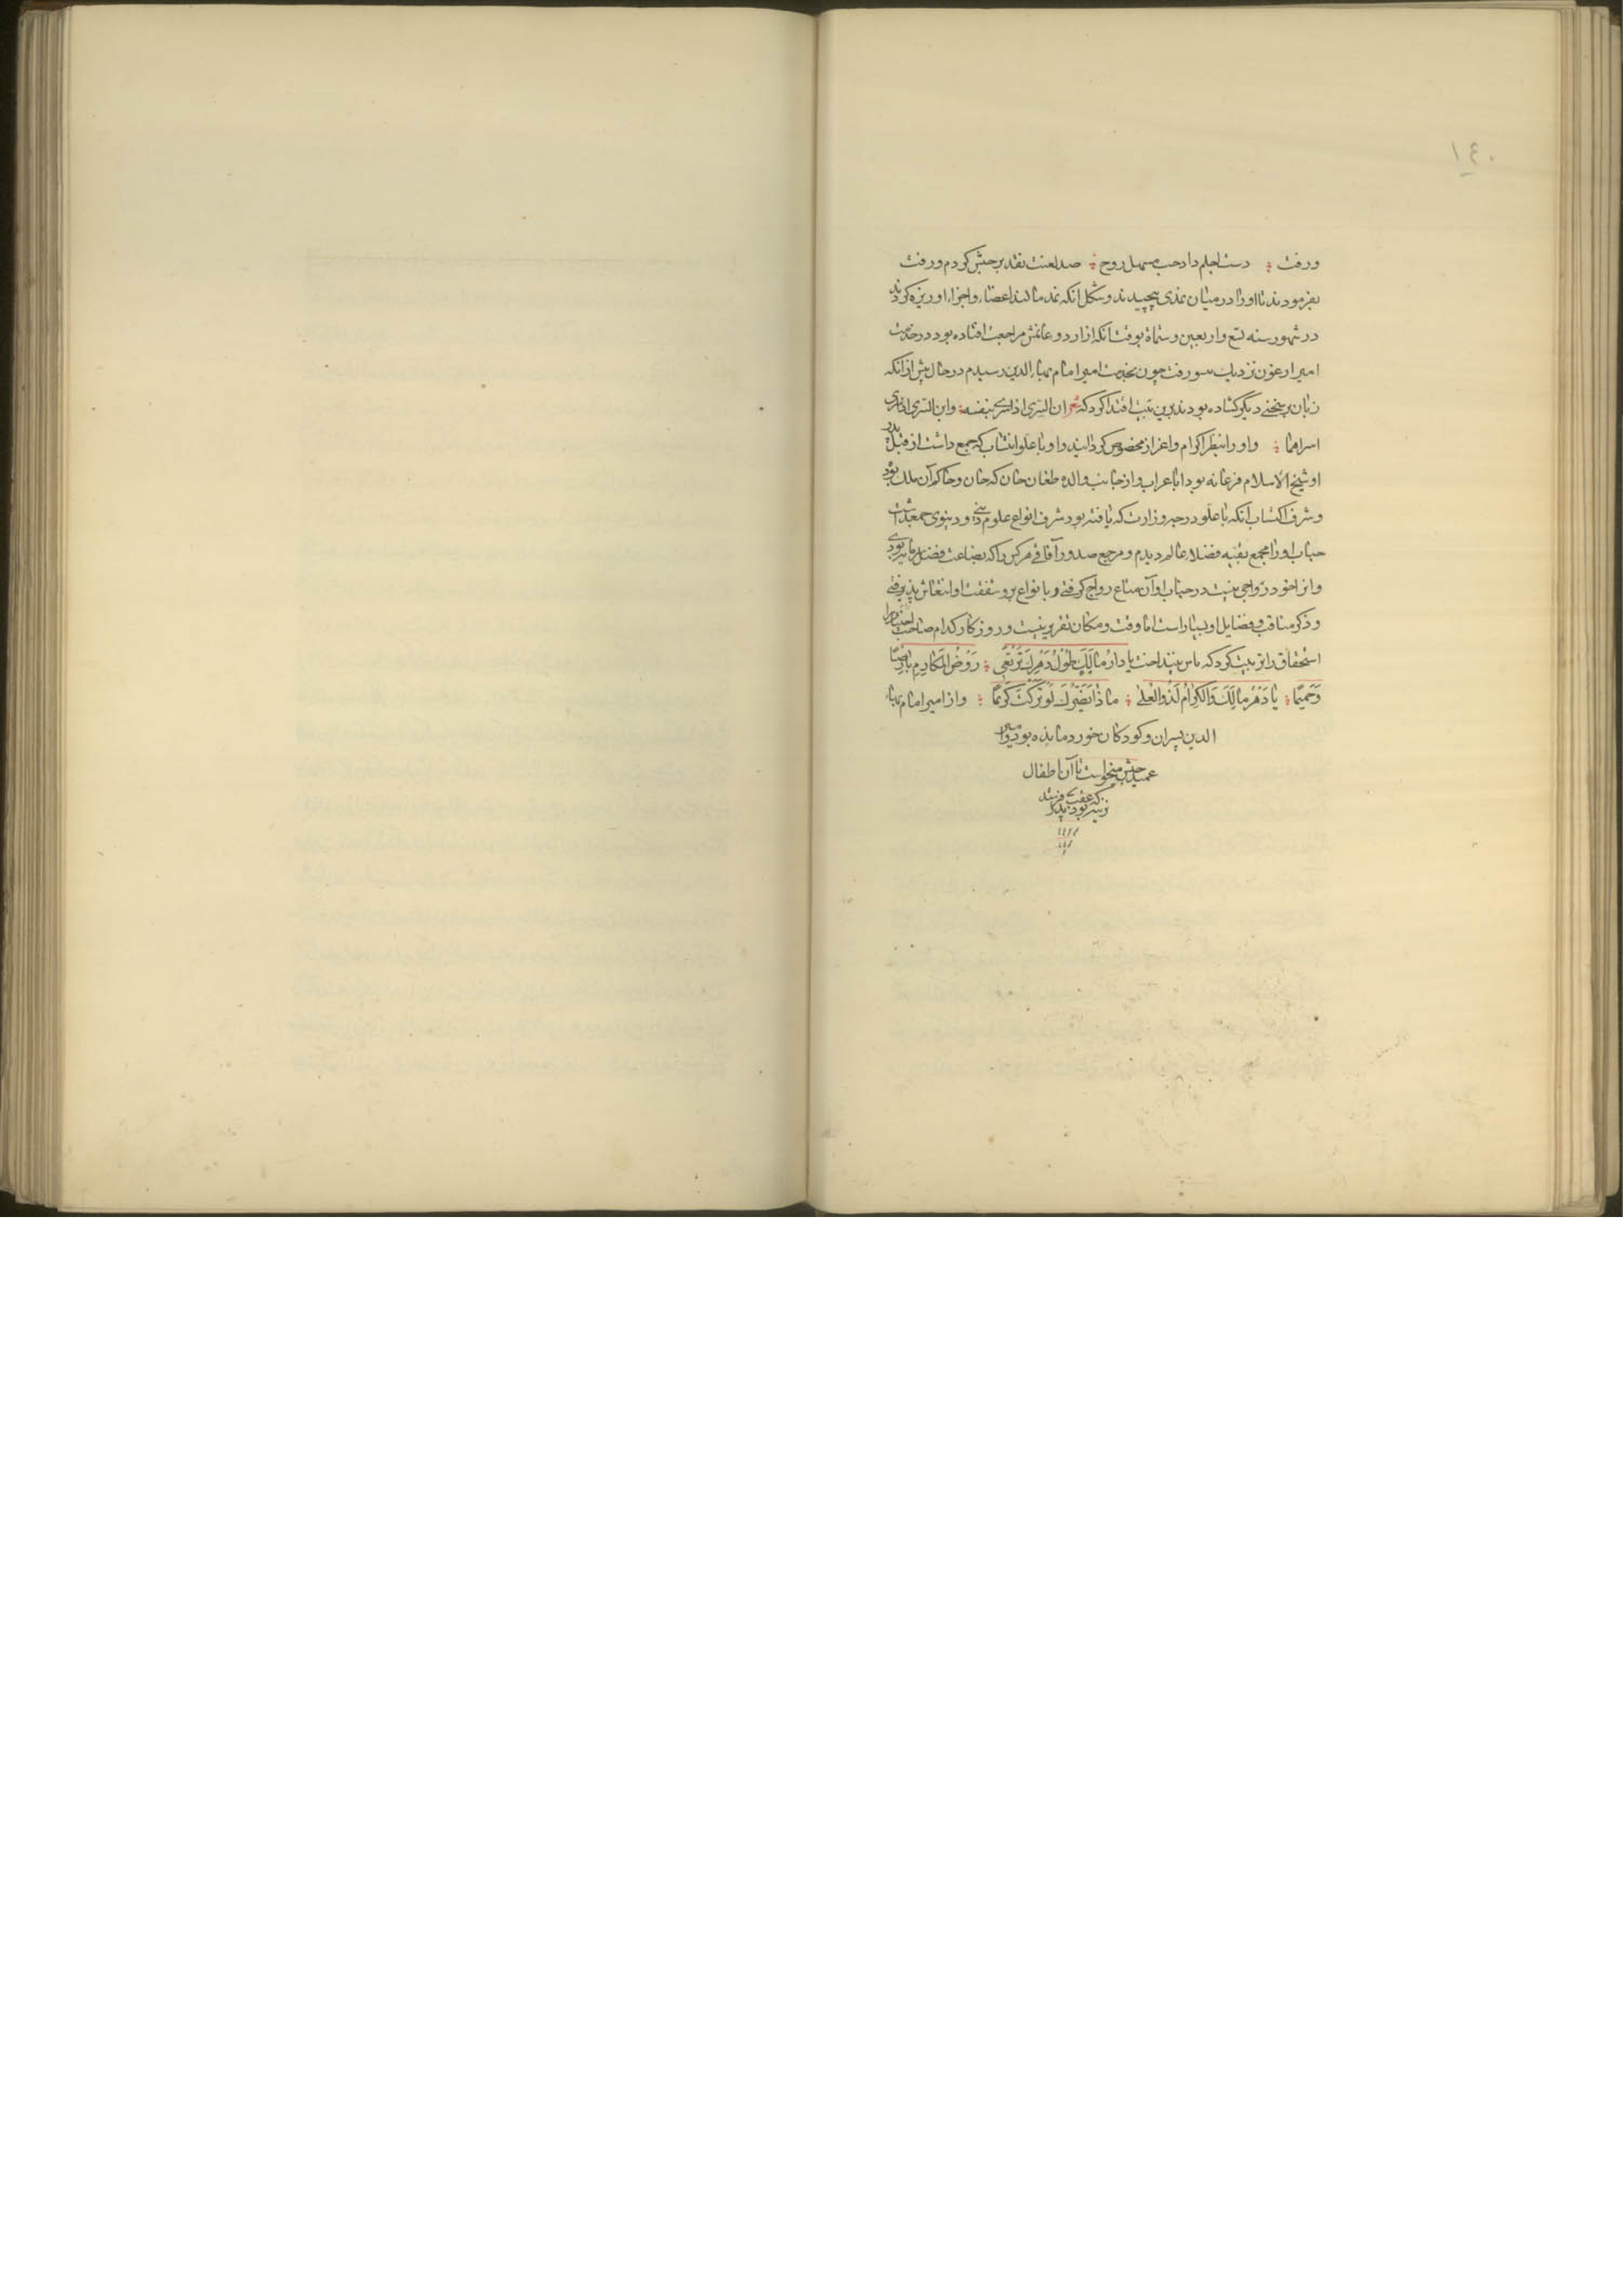 ١٤٠
و رفت ؛ دست اجلم داد حب مسهل روح ؛ صد لعنت نقد بر حبش کردم و رفت
بفرمودند تا او را در میان نمدی پیچیدند و شکل انکه نمد مالند اعضا و اجزاء او ریزه کردند
در شهور سنه تسع و اربعین و ستماة بوقت انکه از اردو غایمش مراجعت افتاده بود در خدمت
امیر ارغون نزدیک یسو رفت چون بخدمت امیر امام بهاء الدین رسیدم در حال پیش از انکه
زبان بر سخنی دیگر کشاده بودند برین بیت افتدا کرد که شعر ان السری اذا سری بنفسه ؛ وابن السری اذا سری
اسراهما ؛ و او را بنظر اکرام و اعزاز مخصوص کردانید و او با علو انتساب که جمع داشت از قبل پدر
او شیخ الاسلام فرغانه بود ابا عن اب و از جانب والده طغان خان که خان و حاکم آن ملک بود
و شرف اکتساب آنکه با علو درجه وزارت که یافته بود شرف انواع علوم دینی و دنیوی جمع داشت
جناب او را مجمع بقیه فضلاء عالم دیدم و مرجع صدور آفاق هر کس را که بضاعت فضل
و انرا خود رواجی نیست در جناب او آن متاع رواج گرفتی و بانواع بر و شفقت او انتعاش پذیرفتی
و ذکر مناقب و فضایل او بسیار است اما وقت و مکان تقریر نیست و روزکار کدام صاحب هنر را
استحقاق را تربیت کرد که باس نینداخت یا دار مالک طول دهرک ترتعی ؛ روض المکارم بارضا
وحمیما ؛ یا دهر مالک والکرام لذوالعلی ؛ ماذا یضرک لو ترکت کریما ؛ و از امیر امام بهاء
الدین پسران و کودکان خورد مانده بود
عمید حبش میخواست تا آن اطفال
که عقب فرزند
نیز بود بدید